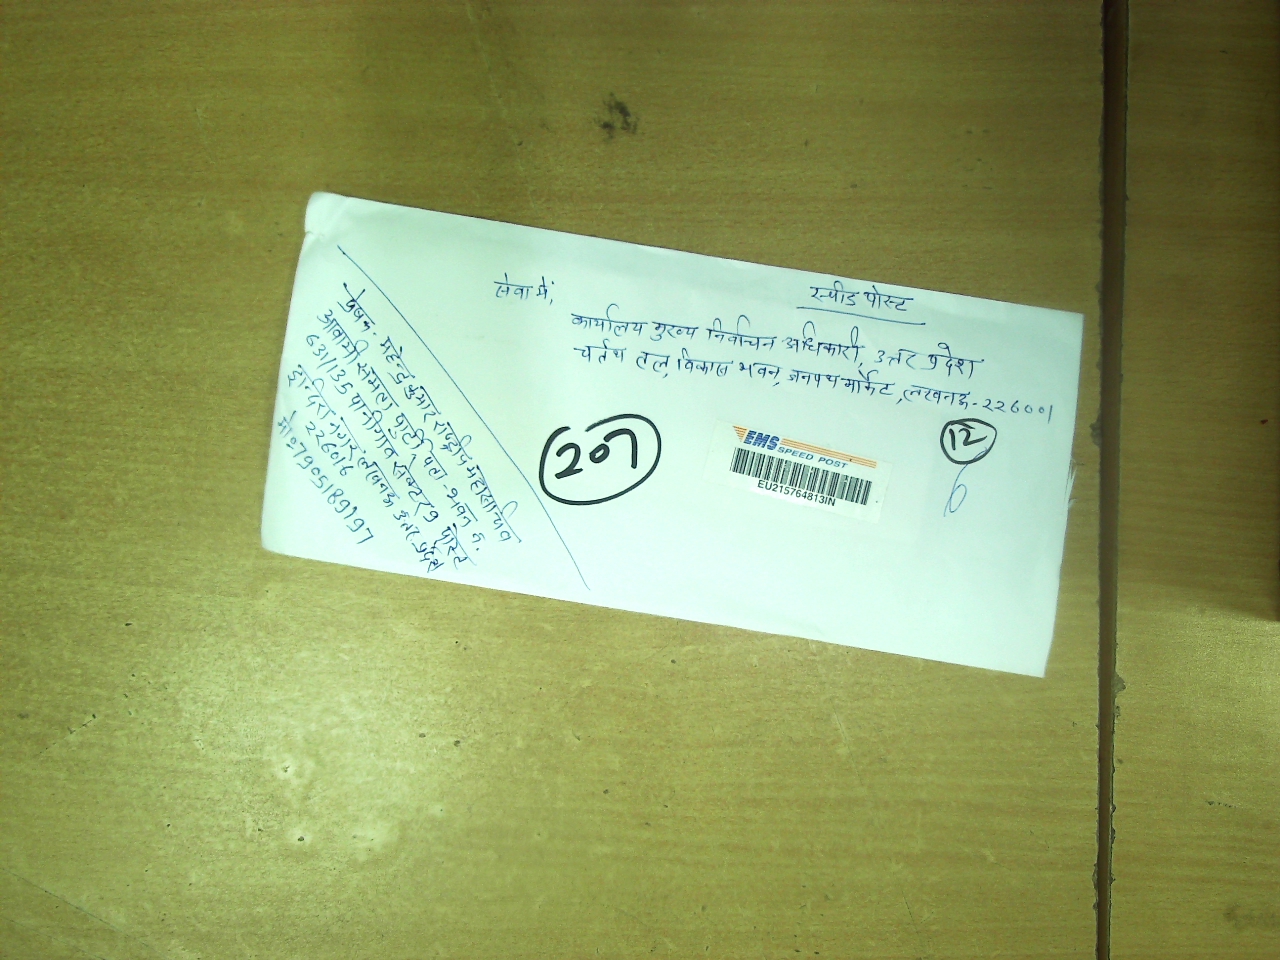 स्पीड पोस्ट
सेवा में,
कार्यालय मुख्य निर्वाचन अधिकारी, उत्तर प्रदेश
चर्तुथ तल, विकास भवन, जनपथ मार्केट, लखनऊ-226001
207
12
EMS
SPEED POST
EU215764813IN
प्रेषक- महेन्द्र कुमार राष्ट्रीय महासचिव
आवामी समता पार्टी, पता-भवन नं.
631/135 पानीगांव सेक्टर 9 पोस्ट
इन्दिरा नगर लखनऊ उत्तर प्रदेश
226016
मो० 7905189197